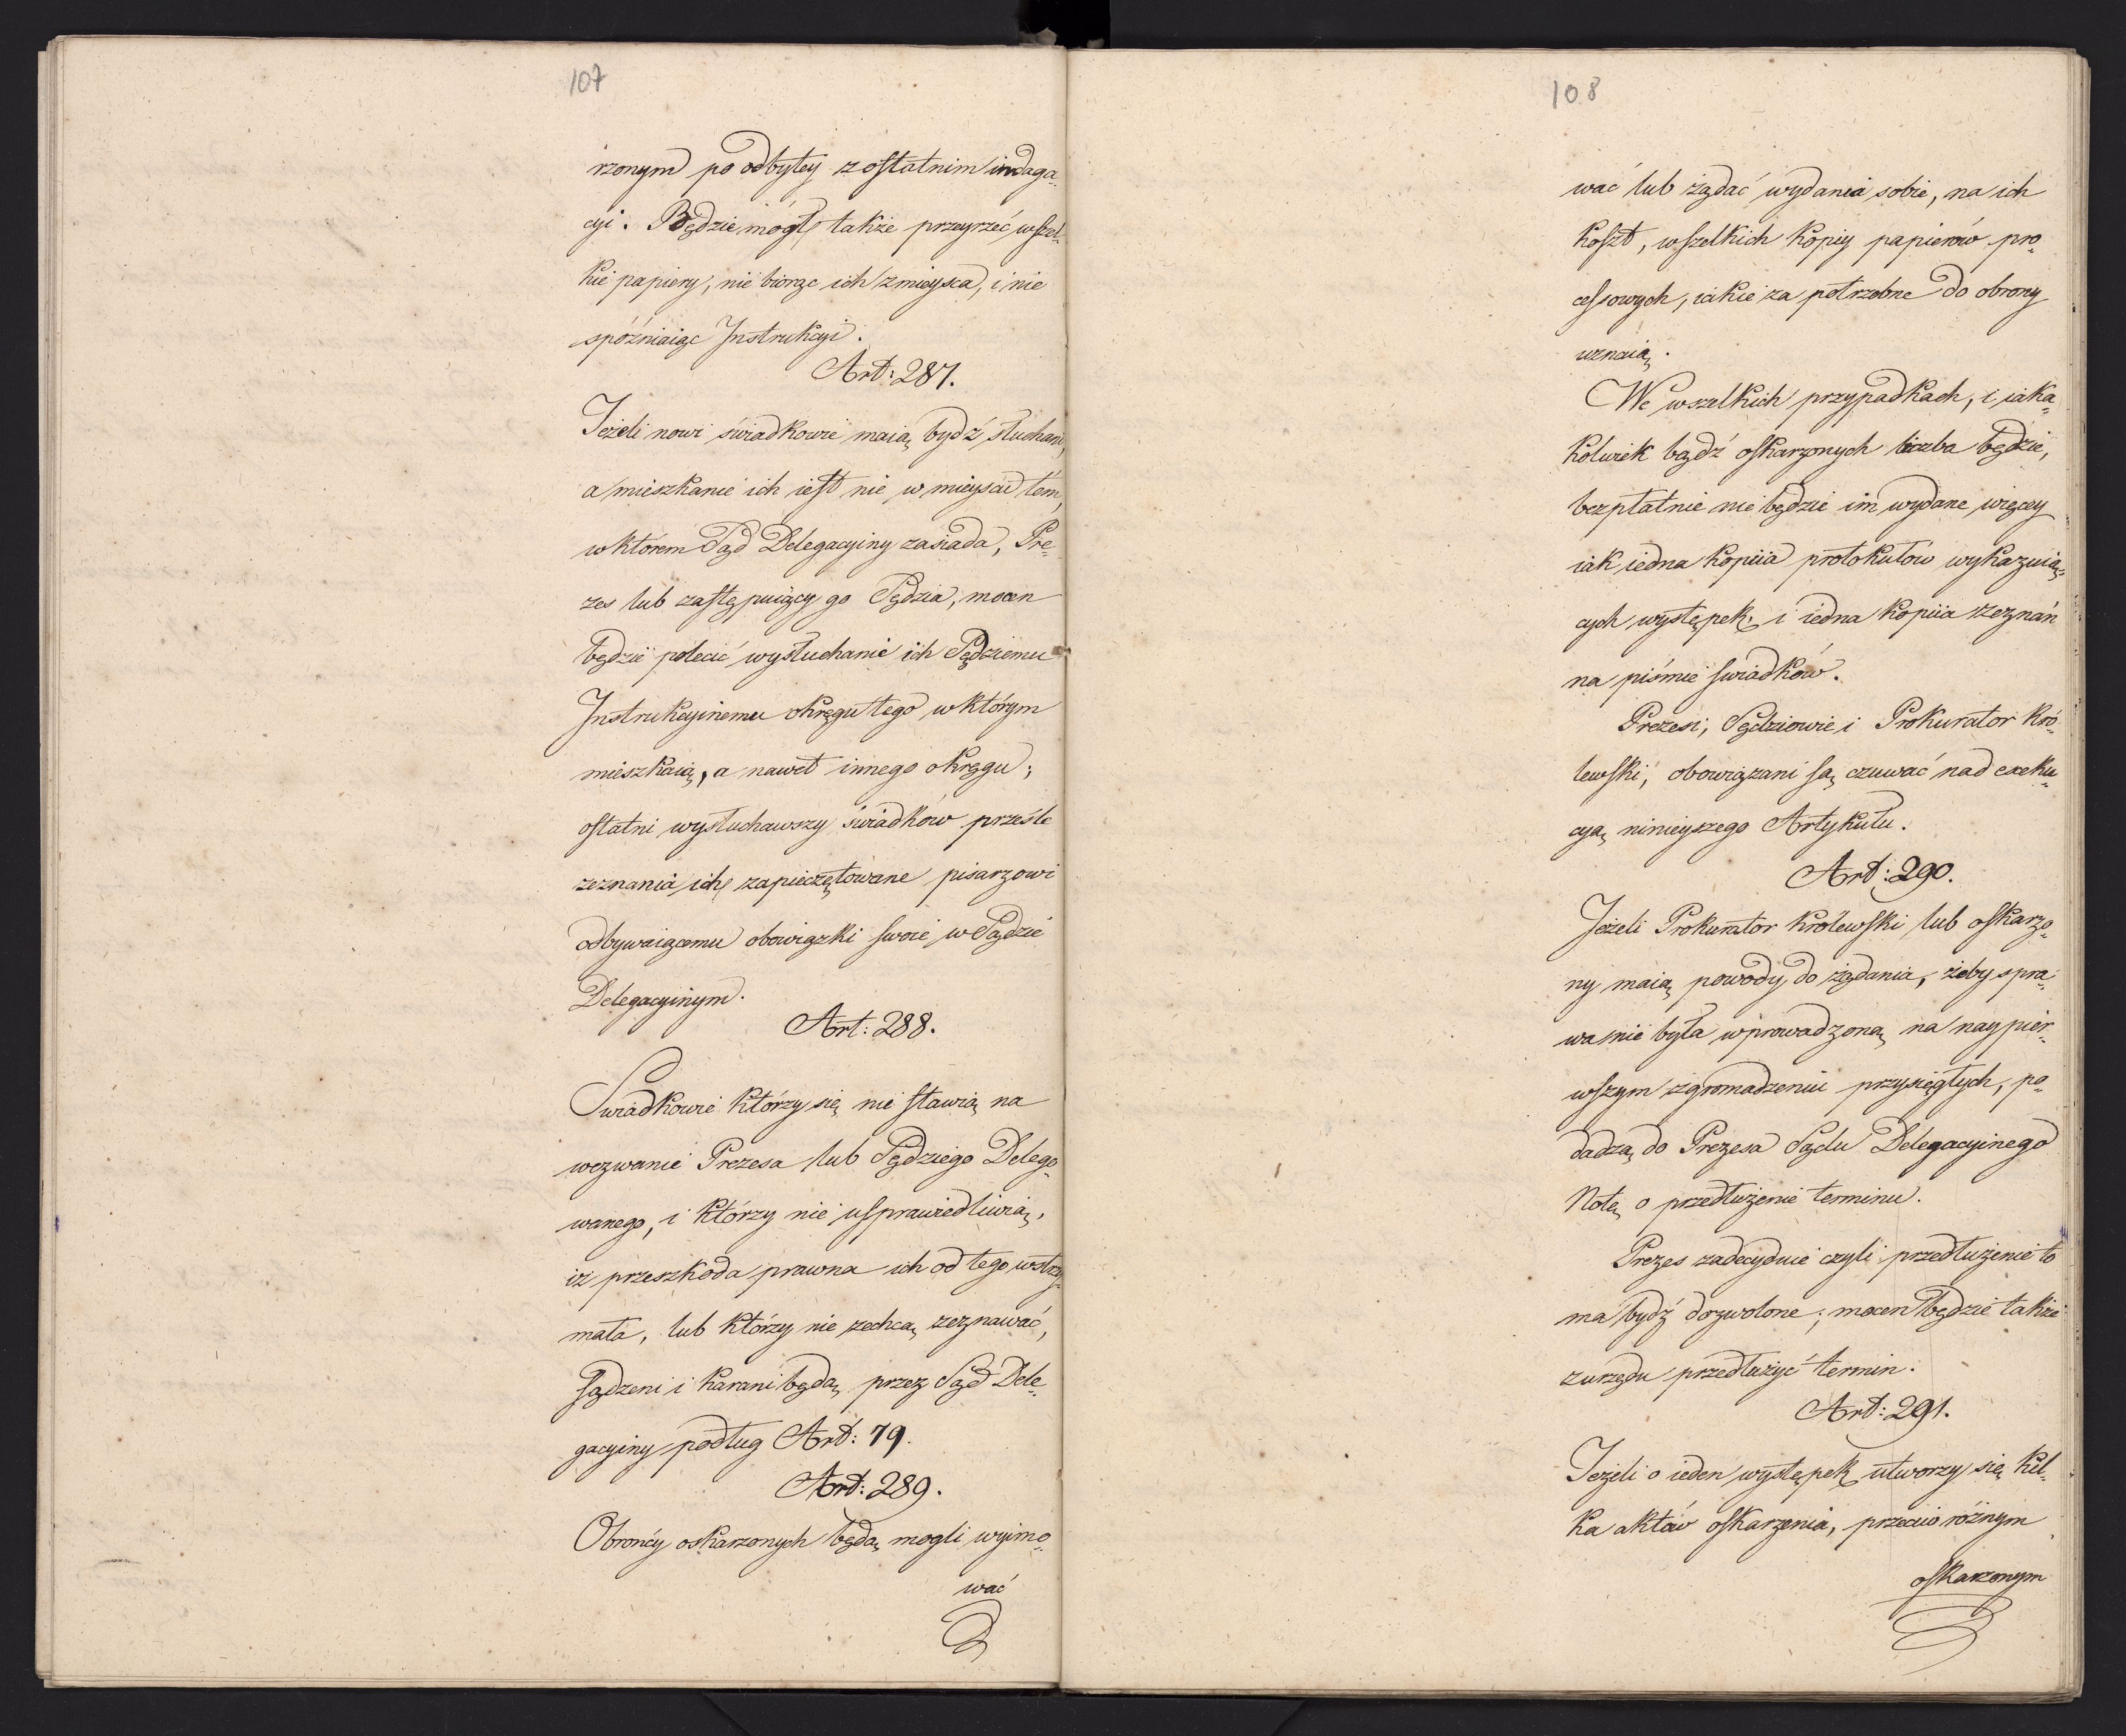 107
rzonym po odbytey z ostatnim indaga„
cyi. Będzie mógł także przeyrzeć wszel„
kie papiery, nie biorąc ich z mieysca, i nie
spóźniaiąc Jnstrukcyi.
Art: 287.
Jeżeli nowi świadkowie maią bydź słuchani,
a mieszkanie ich iest nie w mieyscu tém,
w którem Sąd Delegacyiny zasiada, Pre„
zes lub zastępuiący go Sędzia, mocen
będzie polecić wysłuchanie ich Sędziemu
Jnstrukcyinemu okręgu tego w którym
mieszkaią, a nawet innego okręgu;
ostatni wysłuchawszy świadków prześle
zeznania ich zapieczętowane pisarzowi
odbywaiącemu obowiązki swoie w Sądzie
Delegacyinym.
Art: 288.
Swiadkowie którzy się nie stawią na
wezwanie Prezesa lub Sędziego Delego„
wanego, i którzy nie usprawiedliwią,
iż przeszkoda prawna ich od tego wstrzy„
mała, lub którzy nie zechcą zeznawać,
sądzeni i karani będą, przez Sąd Dele„
gacyiny podług Art: 79.
Art: 289.
Obrońcy oskarzonych będą mogli wyimo„
wać
108
wać lub żądać wydania sobie, na ich
koszt, wszelkich kopiy papierów pro„
cessowych, iakie za potrzebne do obrony
uznaią.
We wszelkich przypadkach, i iaka„
kolwiek bądź oskarzonych liczba będzie,
bezpłatnie nie będzie im wydane więcey
iak iedna kopiia protokułów wykazuią„
cych występek, i iedna kopiia zeznań
na piśmie swiadków.
Prezesi, Sędziowie i Prokurator Kró„
lewski, obowiązani są czuwać nad exeku„
cyą ninieyszego Artykułu.
Art: 290.
Jeżeli Prokurator Królewski lub oskarzo„
ny maią powody do żądania, żeby spra„
wa nie była wprowadzoną na naypier„
wszym zgromadzeniu przysięgłych, po„
dadzą do Prezesa Sądu Delegacyinego
Notę o przedłużenie terminu.
Prezes zadecyduie czyli przedłużenie to
ma bydź dozwolone; mocen będzie także
z urzędu przedłużyć termin.
Art: 291.
Jeżeli o ieden występek utworzy się kil„
ka aktów oskarzenia, przeciio różnym
oskarzonym